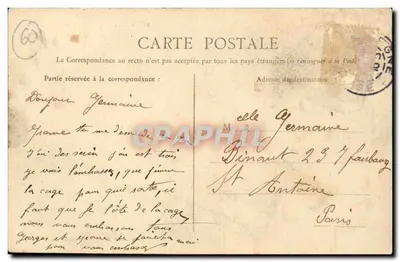 60
CARTE POSTALE
La Correspondance au recto n'est pas acceptée par tous les pays étrangers (se renseigner à la Poste)
Partie réservée à la correspondance :
Adresse du destinataire
Bonjour Germaine
tu me demande
J'ai des serin j'en est trois
je vais l'embrasser, que j'ouvre
la cage pour qu'il sorte, il
faut que je l'ôte de la cage
nous vous embrassons tous
Georges et
pour vous embrasser
Melle Germaine
Binaut 237 faubourg
St Antoine
Paris
CPARHPH